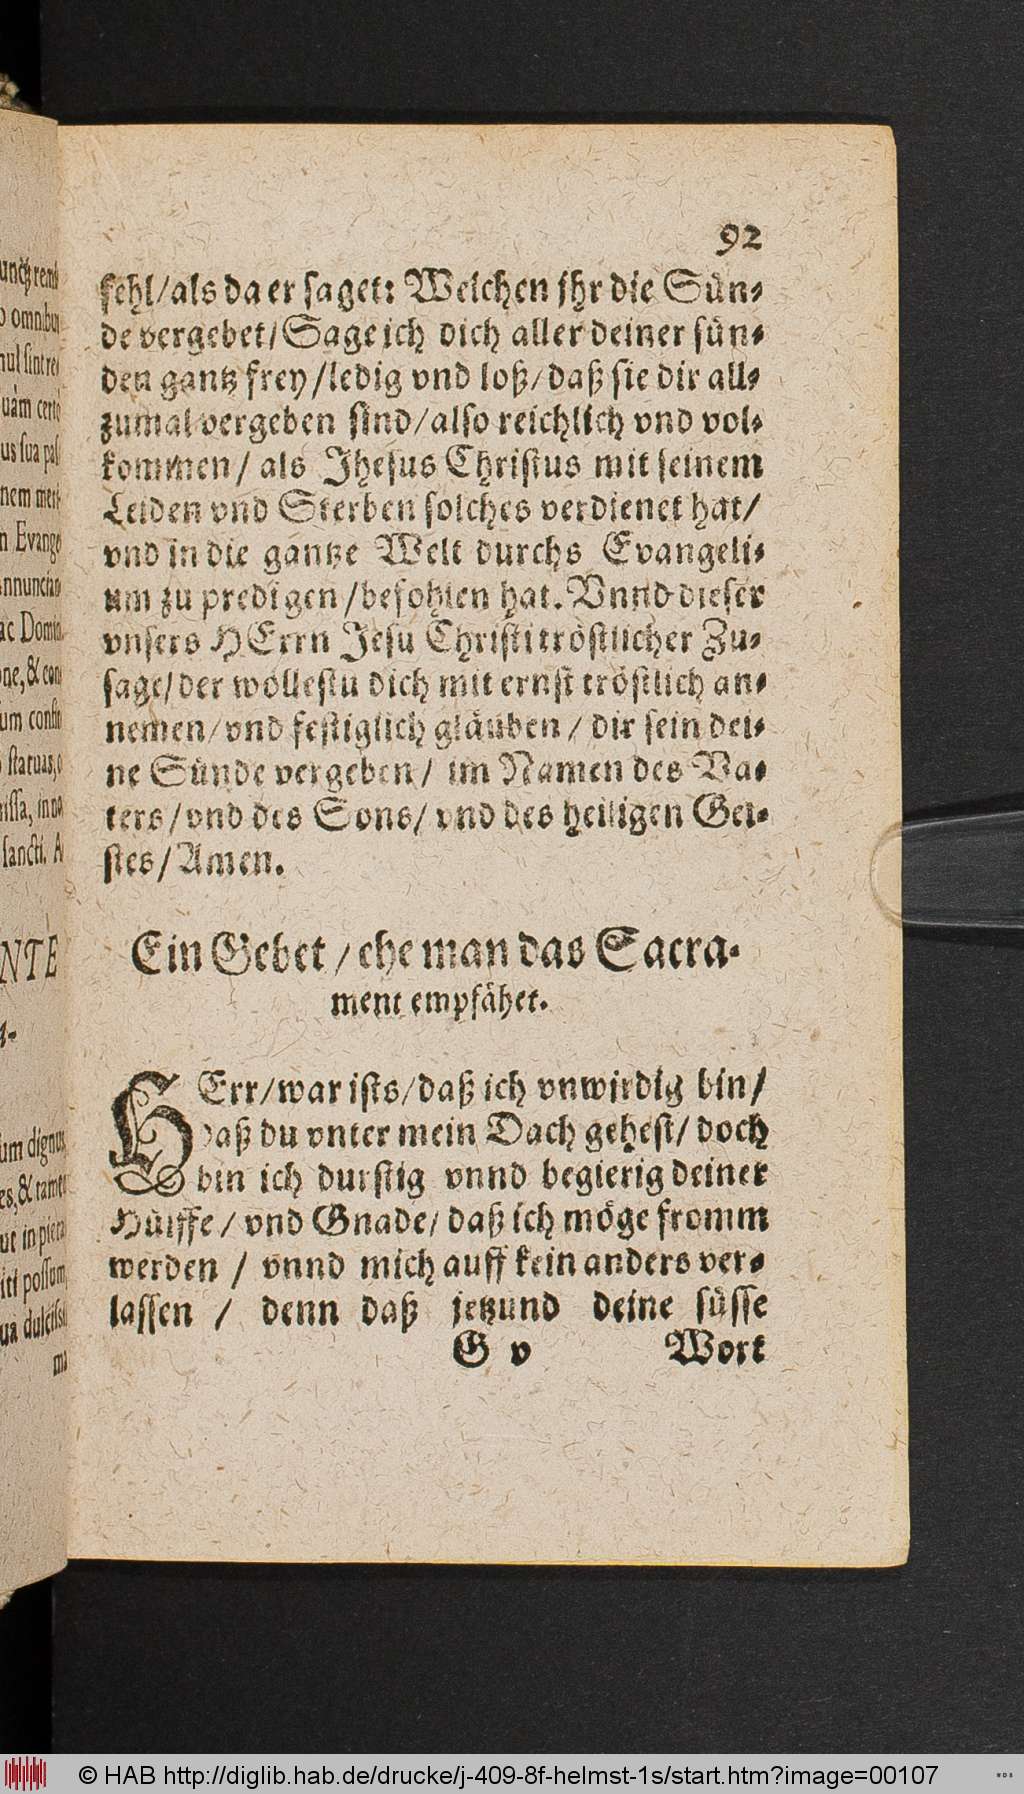 92
fehl/als da er saget: Welchen jhr die Sün-
de vergebet/Sage ich dich aller deiner sün-
den gantz frey/ledig vnd loß/daß sie dir all-
zumal vergeben sind/also reichlich vnd vol-
kommen/ als Jhesus Christus mit seinem
Leiden vnd Sterben solches verdienet hat/
vnd in die gantze Welt durchs Evangeli-
um zu predigen/befohlen hat. Vnnd dieser
vnsers HErrn Jesu Christi tröstlicher Zu-
sage/der wöllestu dich mit ernst tröstlich an-
nemen/vnd festiglich gläuben/ dir sein dei-
ne Sünde vergeben/ im Namen des Va-
ters/vnd des Sons/ vnd des heiligen Gei-
stes/Amen.
Ein Gebet / ehe man das Sacra-
ment empfähet.
HErr/war ists/daß ich vnwirdig bin/
Daß du vnter mein Dach gehest/ doch
bin ich durstig vnnd begierig deiner
Hülffe/ vnd Gnade/ daß ich möge fromm
werden / vnnd mich auff kein anders ver-
lassen / denn daß jetzund deine süsse
G v Wort
unctz rem
omnibus
sint re
quàm certò
us sua pas
nem mer
n Evange
nnuncian
ac Domin
ne, & con
um consti
statuas,
missa, in no
sancti. A
NTE
um dignus
es, & tamen
ut in pieta
iti possum,
ua dulcis
ma
© HAB http://diglib.hab.de/drucke/j-409-8f-helmst-1s/start.htm?image=00107